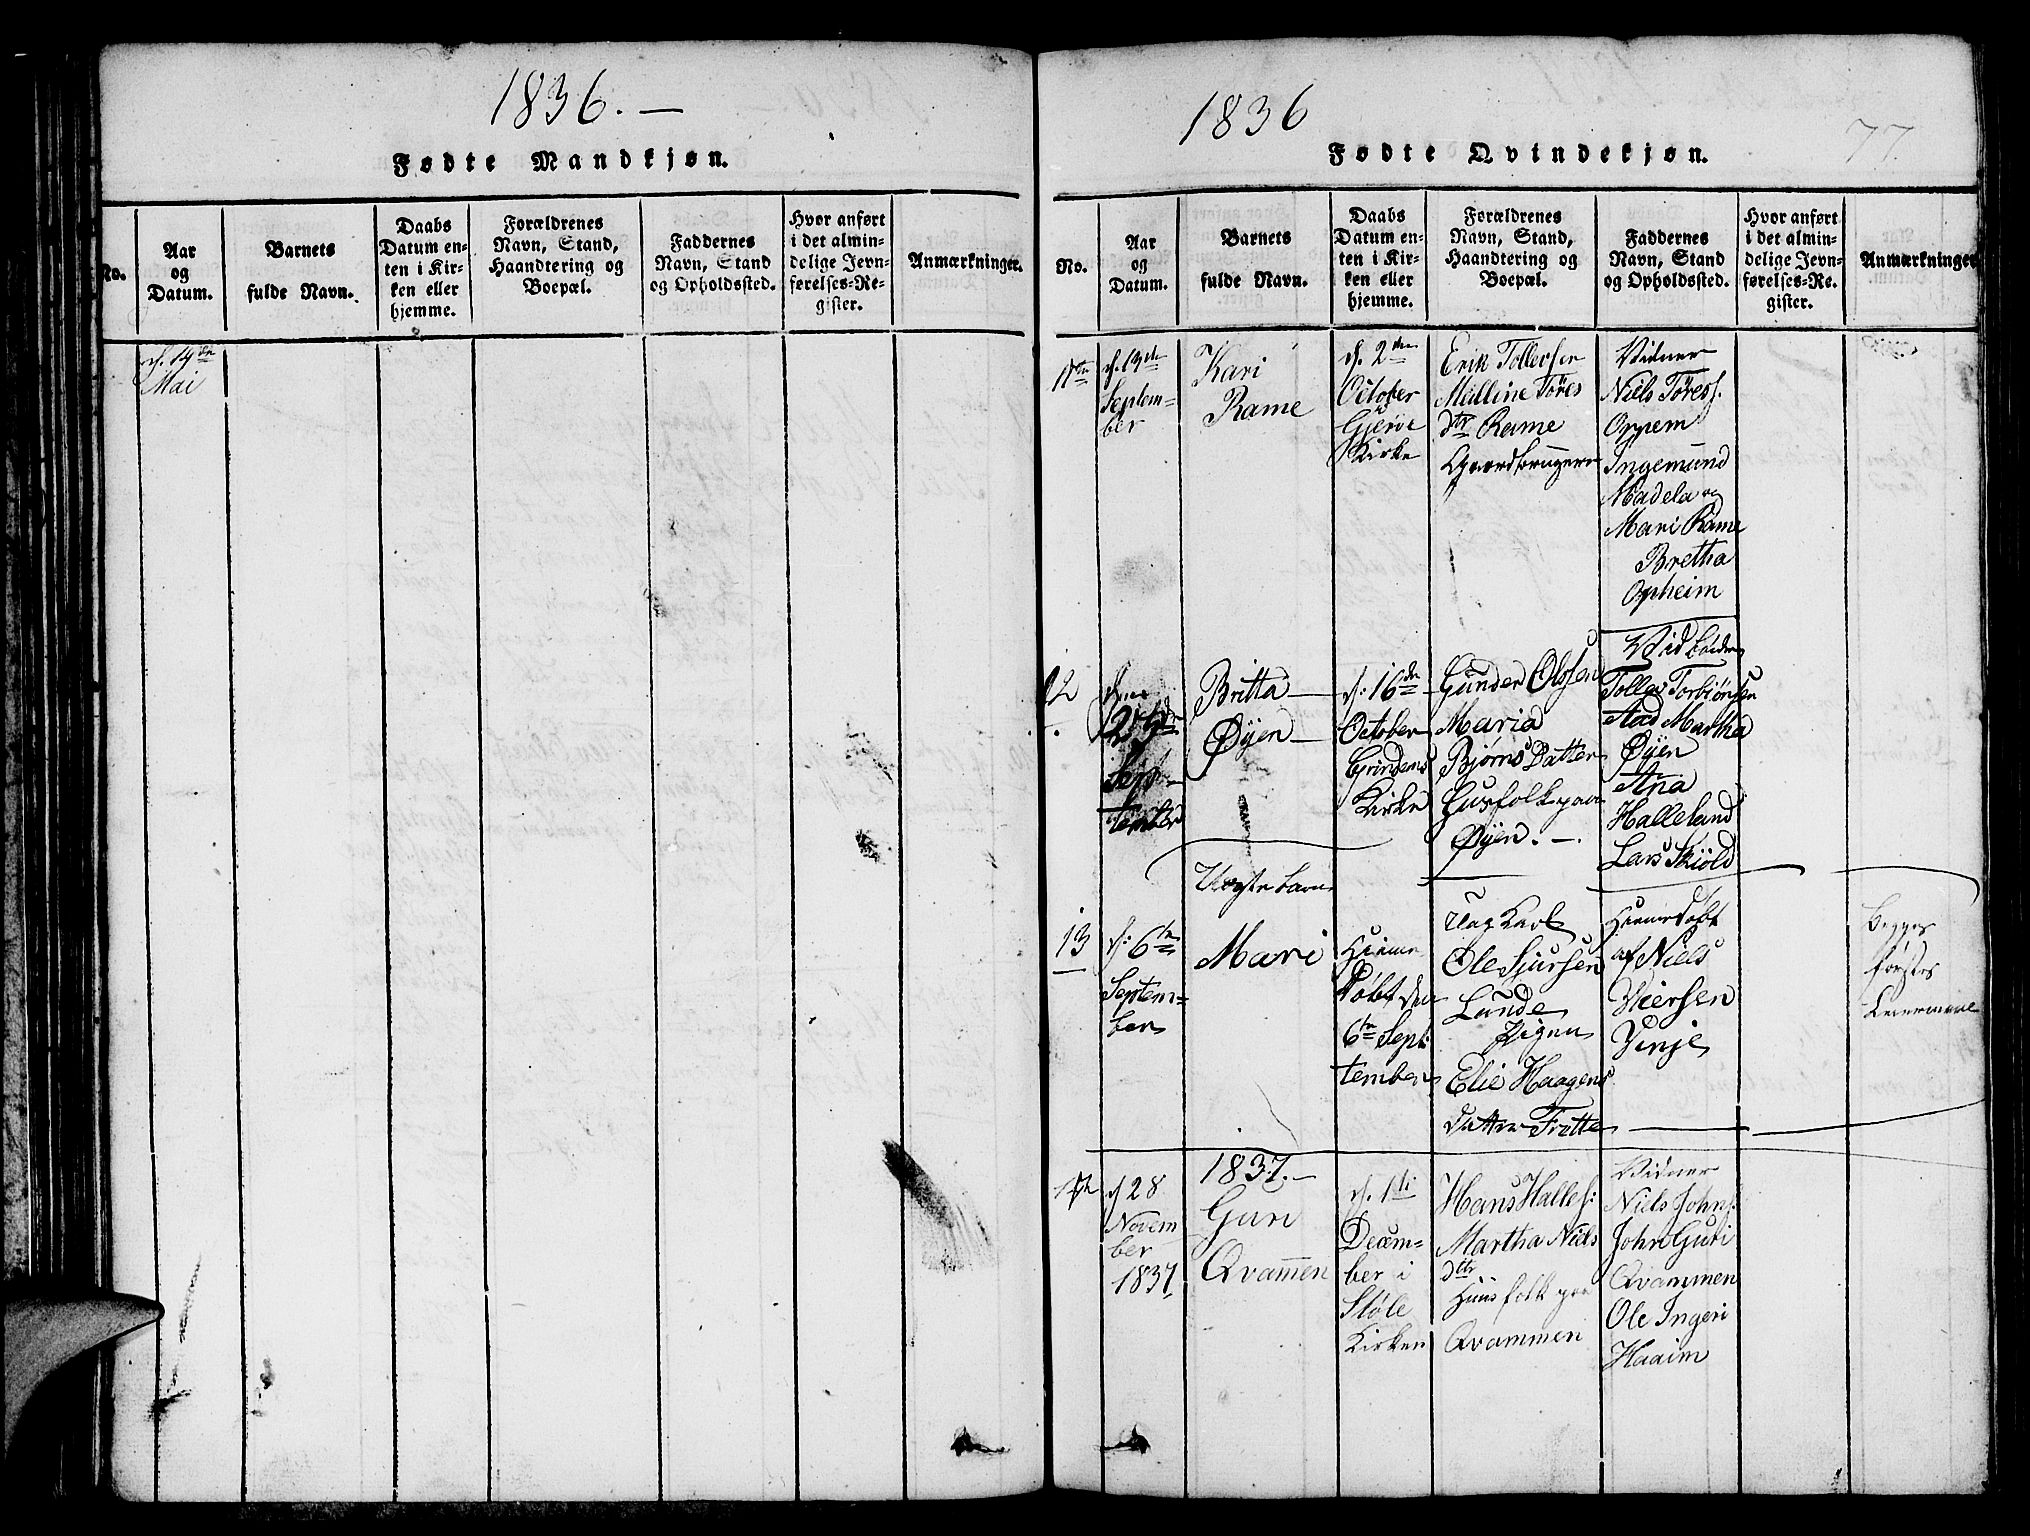 1836.—
Fødte Mandkjøn.
No.
Aar
og
Datum.
Barnets
fulde Navn.
Daabs
Datum en-
ten i Kir-
ken eller
hjemme.
Forældrenes
Navn, Stand,
Haandtering og
Boepæl.
Faddernes
Navn, Stand
og Opholdssted.
Hvor anført
i det almin-
delige Jevn-
førelses-Re-
gister.
Anmærkninger.
d. 14de
Mai
1836
77.
Fødte Qvindekjøn.
No.
Aar
og
Datum.
Barnets
fulde Navn.
Daabs
Datum en-
ten i Kir-
ken eller
hjemme.
Forældrenes
Navn, Stand,
Haandtering og
Boepæl.
Faddernes
Navn, Stand
og Opholdssted.
Hvor anført
i det almin-
delige Jevn-
førelses-Re-
gister.
Anmærkninger
11te
d. 13de
Septem-
ber
Kari
Rame
d. 2den
October
Gjerve
Kirke
Erik Tollefsen
Melline Tøres
dtr Rame
Gaardbrugere
Vidner
Niels Tøress.
Oppem
Ingemund
Madela og
Mari Rame
Bretha
Opheim
12
25de
Sep-
tember
Britta
Øyen
d: 16de
October
Grindems
Kirke
Gunder Olssen
Maria
Bjørns Datter
Husfolk paa
Øyen.—
Tolles Torbiønsen
Aad Martha
Øyen
Ana
Halleland
Lars Skiold
Uægte barn
13
d: 6te
Septem-
ber
Mari
Hieme
Døbt den
6te Sep-
tember
Ung Karl
Ole Sjursen
Lunde
Pigen
Elie Haagens
datter Frette
Hiemedøbt
af Niels
Viersen
Yinje
Begges
første
Leiermaal
14de
d 28
Novem
ber
1837
1837.—
Guri
Qvammen
d. 1ti
Decem-
ber i
Støle
Kirken
Hans Halles:
Martha Niels
dtr
Huusfolk paa
Qvammen
Vidner
Niels Johns:
John Guri
Qvammen
Ole Ingeri
Haaim